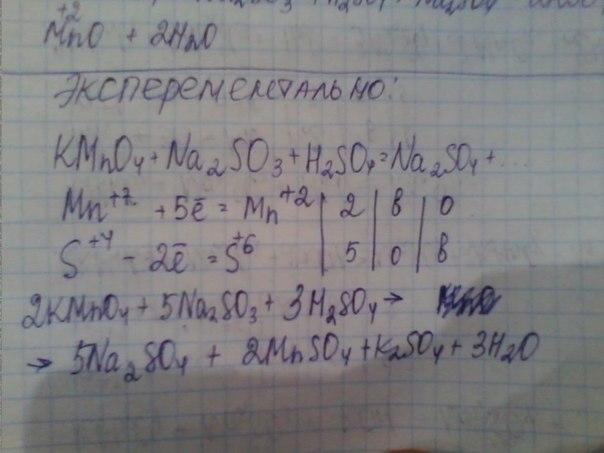 +2
MnO + 2H2O
ЭКСПЕРЕМЕНТАЛЬНО:
KMnO4 + Na2SO3 + H2SO4 = Na2SO4 + ...
Mn+7 + 5ē = Mn+2 | 2 | в | о
S+4 - 2ē = S+6 | 5 | о | в
2KMnO4 + 5Na2SO3 + 3H2SO4 →
→ 5Na2SO4 + 2MnSO4 + K2SO4 + 3H2O